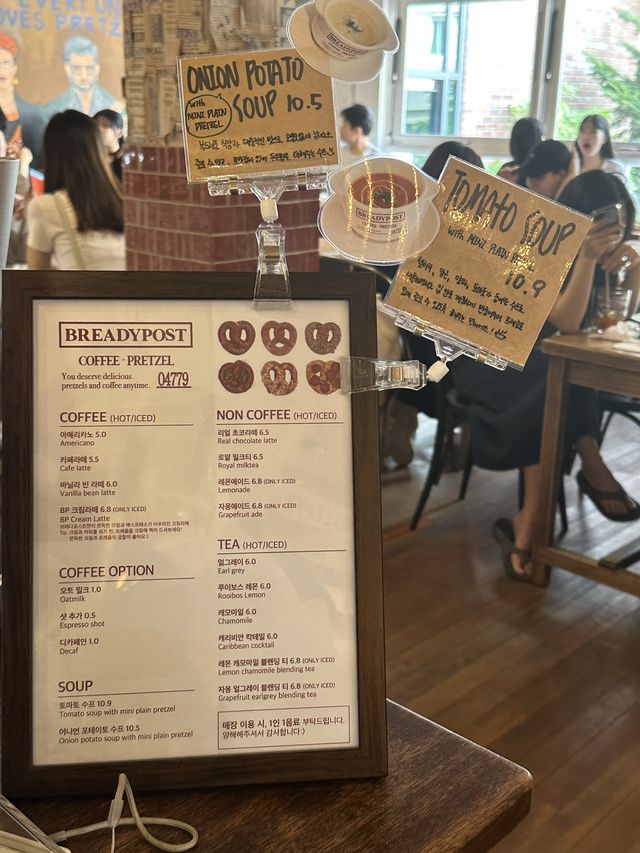 ONION POTATO
SOUP 10.5
with
MINI PLAIN
PRETZEL
BREADYPOST
BREADYPOST
TOMATO SOUP
with MINI PLAIN PRETZEL
10.9
BREADYPOST
COFFEE · PRETZEL
You deserve delicious
pretzels and coffee anytime.
04779
COFFEE (HOT/ICED)
아메리카노 5.0
Americano
카페라떼 5.5
Cafe latte
바닐라 빈 라떼 6.0
Vanilla bean latte
BP 크림라떼 6.8 (ONLY ICED)
BP Cream Latte
COFFEE OPTION
오트 밀크 1.0
Oatmilk
샷 추가 0.5
Espresso shot
디카페인 1.0
Decaf
SOUP
토마토 수프 10.9
Tomato soup with mini plain pretzel
어니언 포테이토 수프 10.5
Onion potato soup with mini plain pretzel
NON COFFEE (HOT/ICED)
리얼 초코라떼 6.5
Real chocolate latte
로얄 밀크티 6.5
Royal milktea
레몬에이드 6.8 (ONLY ICED)
Lemonade
자몽에이드 6.8 (ONLY ICED)
Grapefruit ade
TEA (HOT/ICED)
얼그레이 6.0
Earl grey
루이보스 레몬 6.0
Rooibos Lemon
캐모마일 6.0
Chamomile
캐리비안 칵테일 6.0
Caribbean cocktail
레몬 캐모마일 블렌딩 티 6.8 (ONLY ICED)
Lemon chamomile blending tea
자몽 얼그레이 블렌딩 티 6.8 (ONLY ICED)
Grapefruit earlgrey blending tea
매장 이용 시, 1인 1음료 부탁드립니다.
양해해주셔서 감사합니다:)